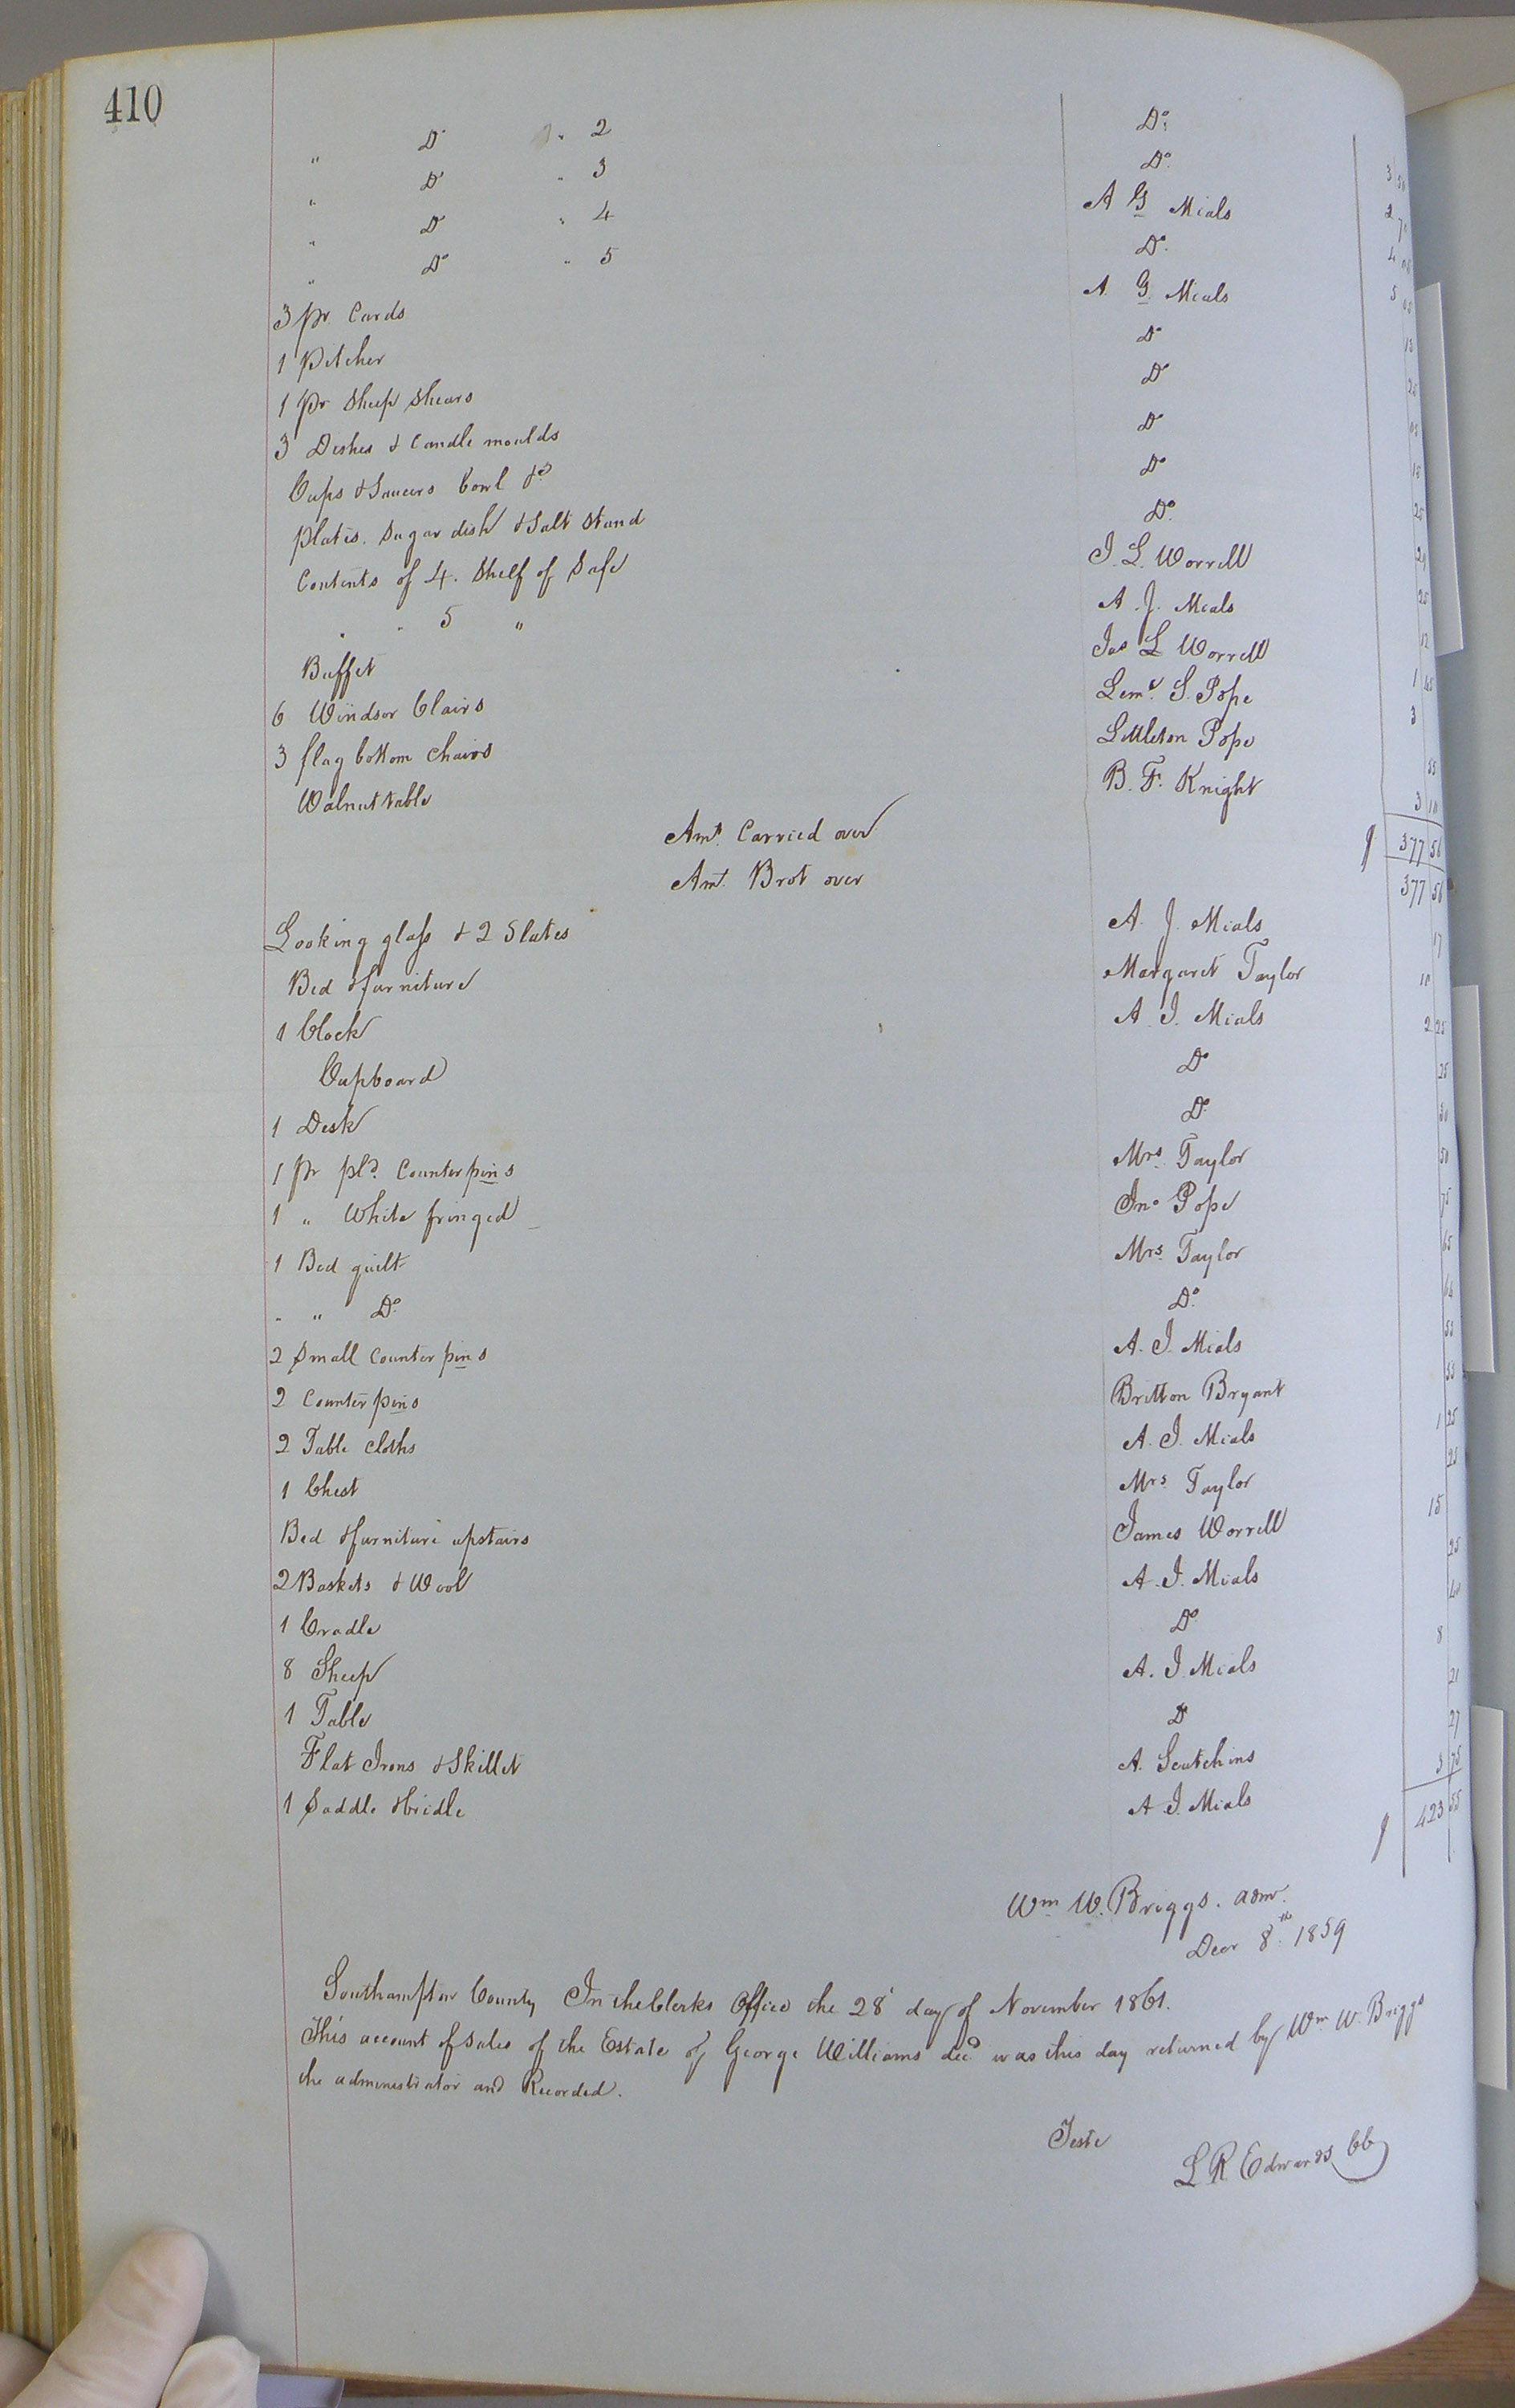 410
" Do " 2 Do
" Do " 3 Do
" Do " 4 A G Mials
" Do " 5 Do
3 pr Cards A. G. Mials
1 Pitcher Do
1 pr Sheep Shears Do
3 Dishes & Candle moulds Do
Cups & Saucers bowl &c Do
Plates. Sugar dish & Salt Stand Do
Contents of 4. Shelf of Safe J. L. Worrell
" " 5 " A. J. Mials
Buffet Jas L Worrell 1
6 Windsor Chairs Leml. S. Pope 3
3 flag bottom Chairs Littleton Pope
Walnut table B. F. Knight 3 10
Amt. Carried over $ 377 56
Amt. Brot over 377 56
Looking glass & 2 Slates A. J. Mials 17
Bed & furniture Margaret Taylor 10
1 Clock A. J. Mials 2 25
Cupboard Do 25
1 Desk Do 50
1 pr pld. Counterpins Mrs. Taylor 50
1 " White fringed Jno Pope 75
1 Bed quilt Mrs. Taylor 65
" " Do. Do. 64
2 Small Counterpins A. J. Mials 55
2 Counterpins Britton Bryant 55
2 Table Cloths A. J. Mials 1 25
1 Chest Mrs Taylor 25
Bed & furniture upstairs James Worrell 15
2 Baskets & Wool A. J. Mials 25
1 Cradle Do
8 Sheep A. J. Mials 8
1 Table Do 21
Flat Irons & Skillet A. Scutchins 27
1 Saddle & bridle A J. Mials 3 75
$ 423 55
Wm W. Briggs. adm.
Decr 8th. 1859
Southampton County In the Clerks Office the 28' day of November 1861.
This account of sales of the Estate of George Williams decd was this day returned by Wm W. Briggs
the administrator and Recorded.
Teste
L R Edwards CC